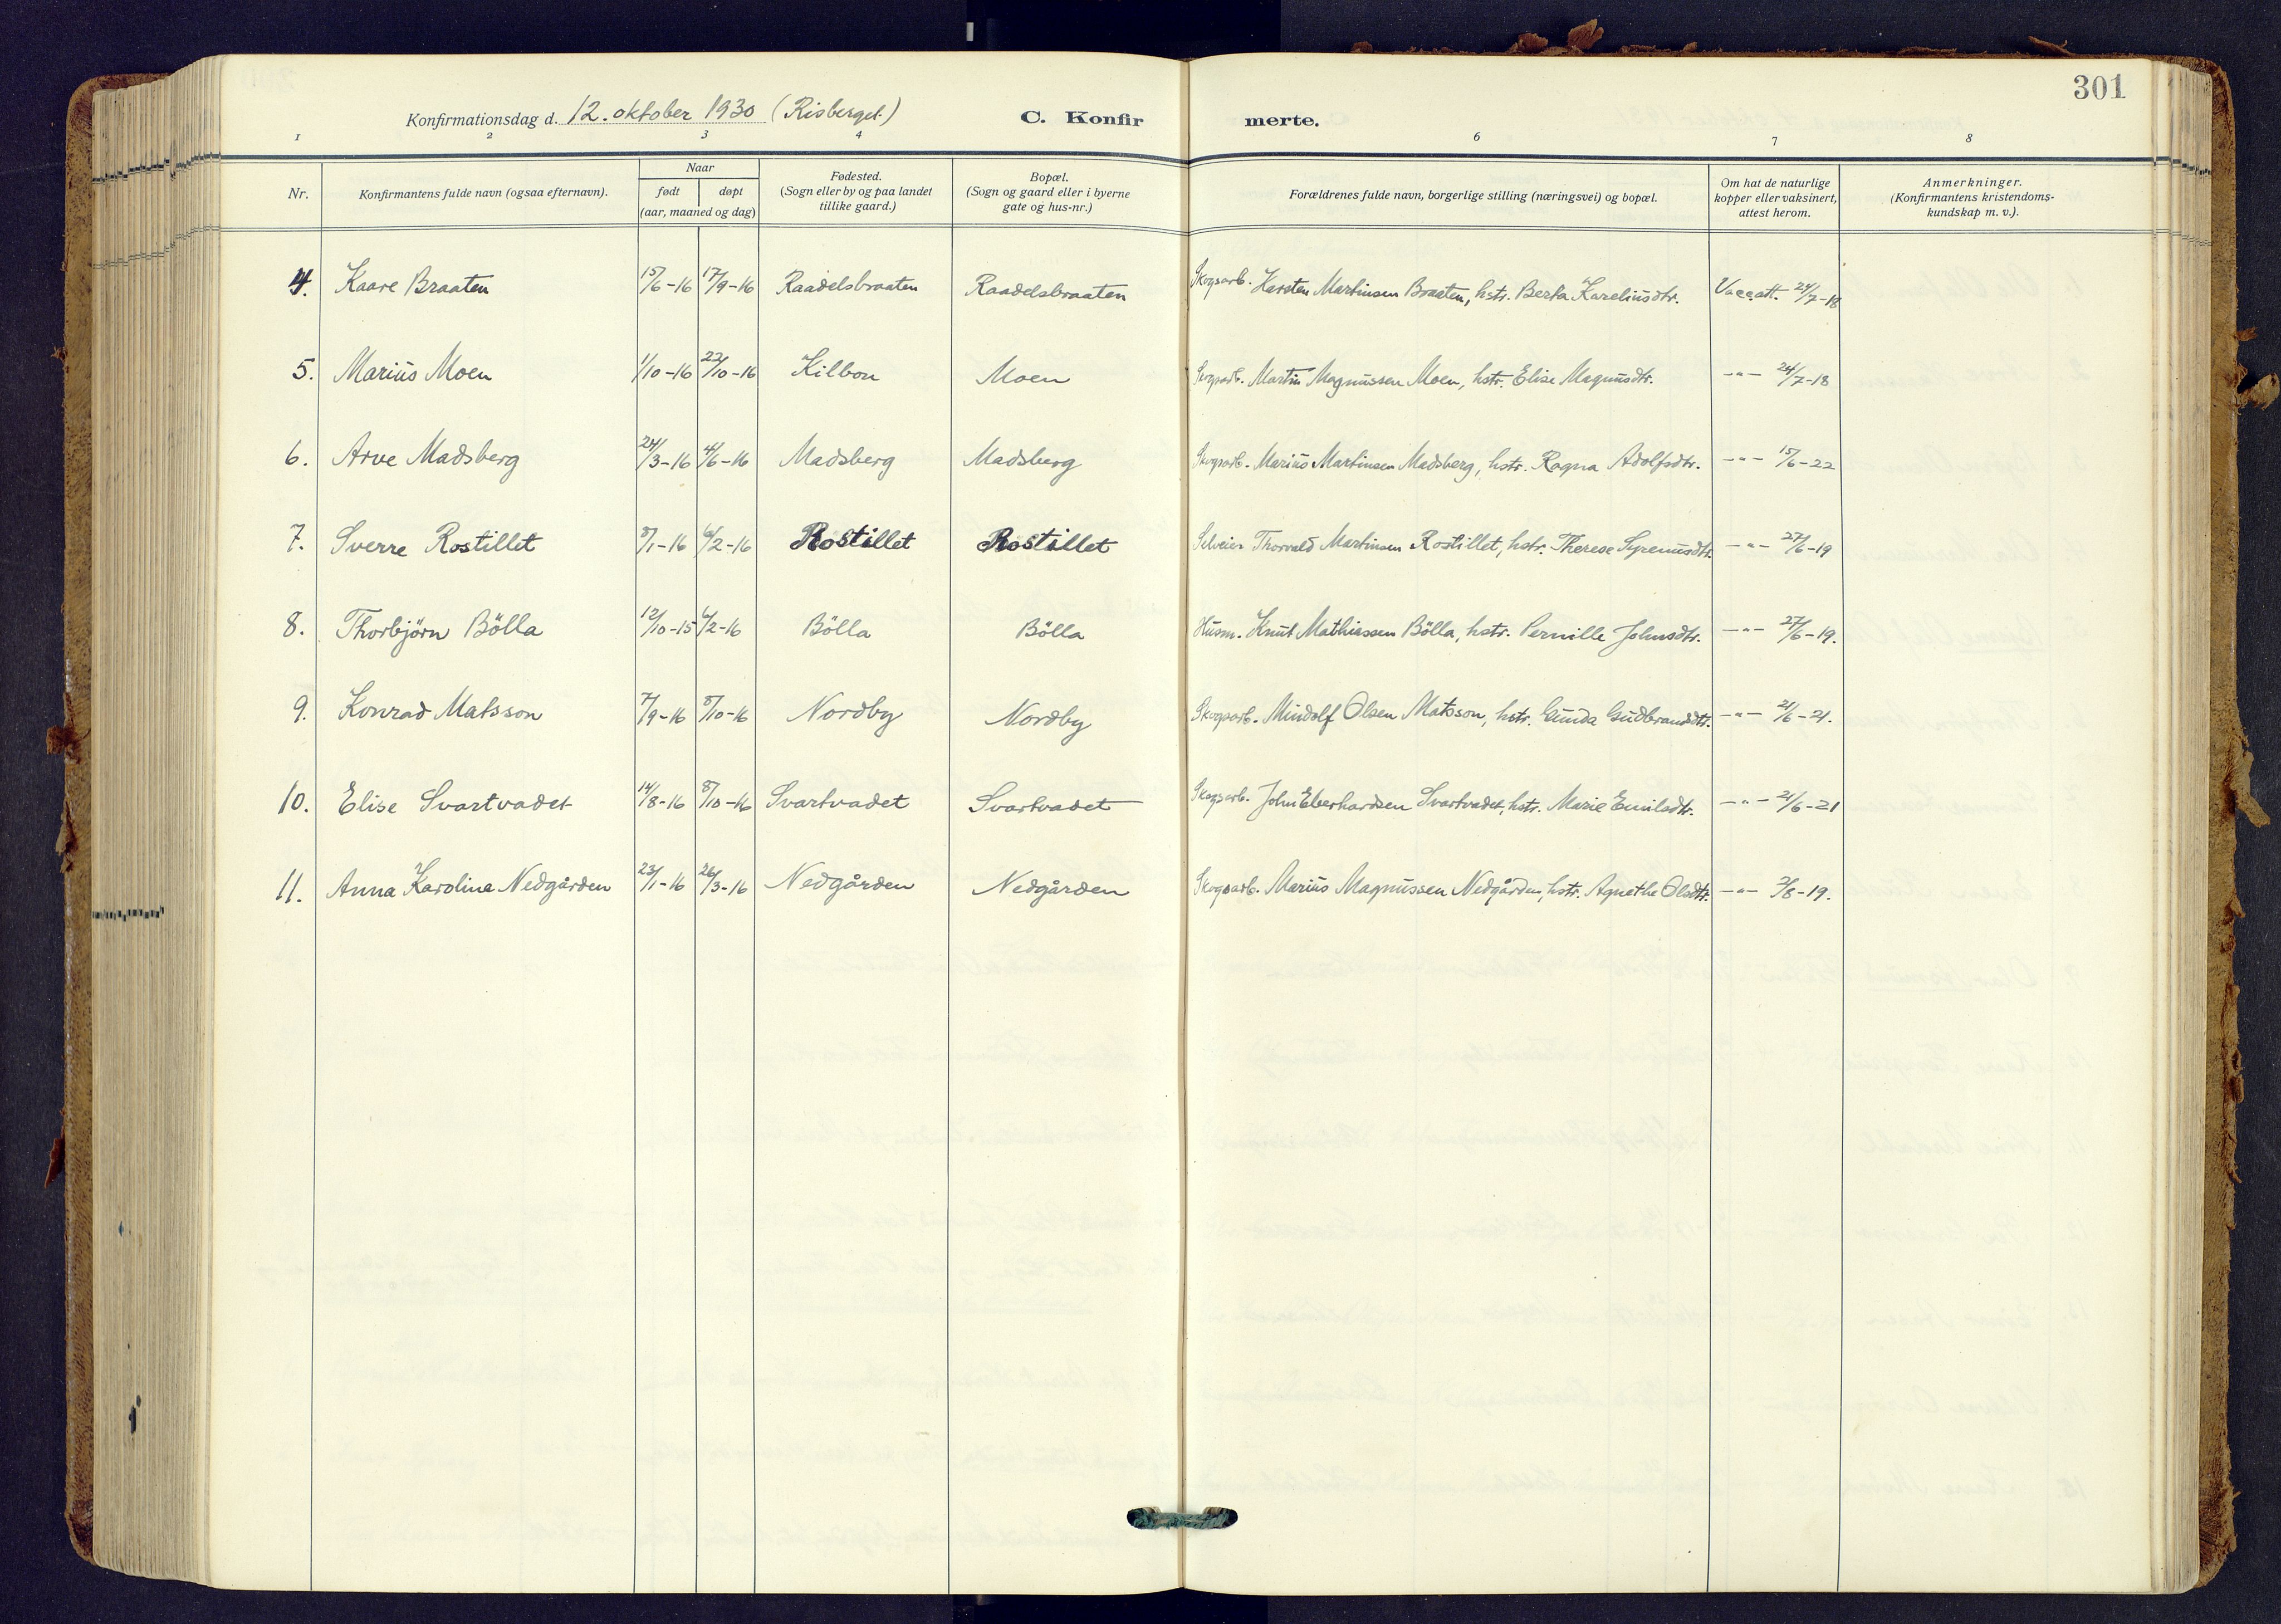 301
Konfirmationsdag d. 12. oktober 1930 (Risberget.) C. Konfir merte.
1 2 3 4 6 7 8
Nr. Konfirmantens fulde navn (ogsaa efternavn). Naar født døpt (aar, maaned og dag) Fødested. (Sogn eller by og paa landet tillike gaard.) Bopæl. (Sogn og gaard eller i byerne gate og hus-nr.) Forældrenes fulde navn, borgerlige stilling (næringsvei) og bopæl. Om hat de naturlige kopper eller vaksinert, attest herom. Anmerkninger. (Konfirmantens kristendoms-kundskap m. v.).
4. Kaare Braaten 15/6-16 17/9-16 Raadelsbraaten Raadelsbraaten Skogsarb. Karsten Martinsen Braaten, hstr. Berta Kareliusdtr. Vacc.att. 24/7-18
5. Marius Moen 1/10-16 22/10-16 Kilbon Moen Skogsarb. Martin Magnussen Moen, hstr. Elise Magnusdtr. -"- 24/7-18
6. Arve Madsberg 24/3-16 4/6-16 Madsberg Madsberg Skogsarb. Marius Martinsen Madsberg, hstr. Ragna Adolfsdtr. -"- 15/6-22
7. Sverre Rostillet 8/1-16 6/2-16 Rostillet Rostillet Selveier Thorvald Martinsen Rostillet, hstr. Therese Syrenusdtr. -"- 27/6-19
8. Thorbjörn Bölla 12/10-15 6/2-16 Bölla Bölla Husm. Knut Mathiassen Bölla, hstr. Pernille Johnsdtr. -"- 27/6-19.
9. Konrad Matsson 7/9-16 8/10-16 Nordby Nordby Skogsarb. Mindolf Olsen Matsson, hstr. Gunda Gudbrandsdtr. -"- 21/6-21.
10. Elise Svartvadet 14/8-16 8/10-16 Svartvadet Svartvadet Skogsarb. John Eberhardsen Svartvadet, hstr. Marie Emilsdtr. -"- 21/6-21
11. Anna Karolina Nedgården 23/1-16 26/3-16 Nedgården Nedgården Skogsarb. Marius Magnussen Nedgården, hstr. Agnethe Olsdtr. -"- 2/8-19.